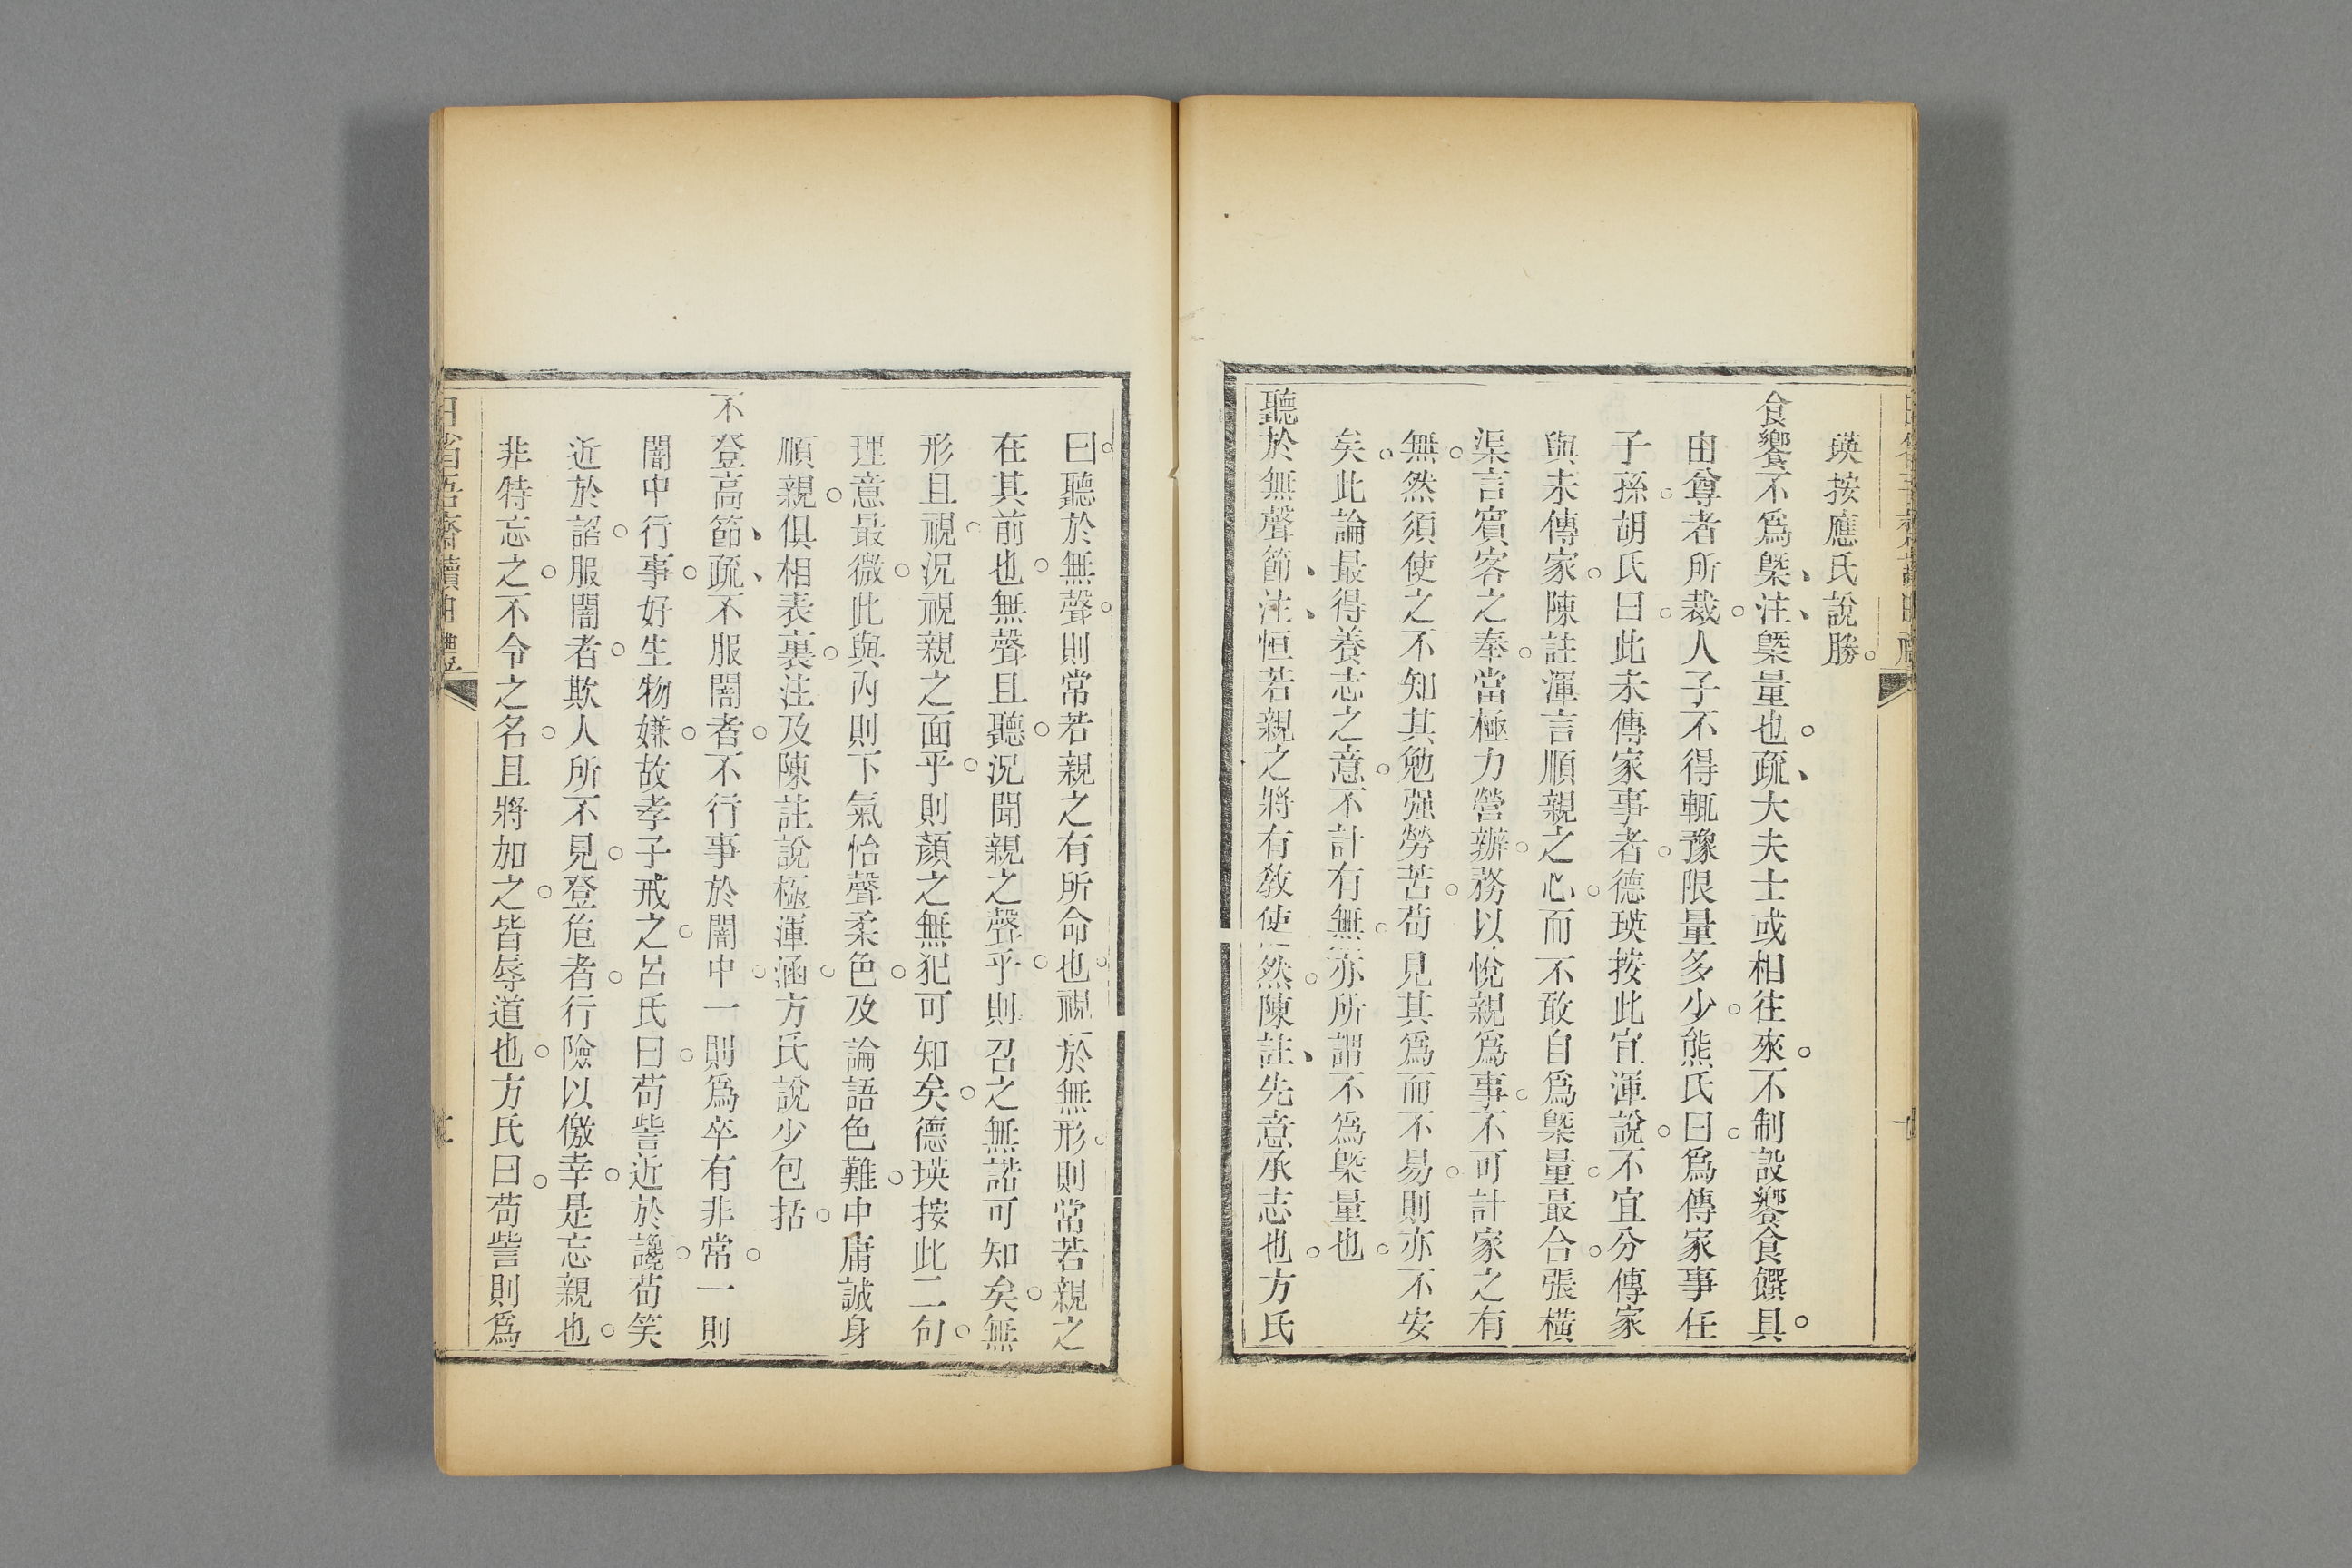 瑛按應氏說勝。
食饗不爲槩、注、槩量也。疏、大夫士或相往來。不制設饗食饌具。
由尊者所裁。人子不得輒豫限量多少。熊氏曰。爲傳家事任
子孫。胡氏曰。此未傳家事者。德瑛按此宜渾說。不宜分傳家
與未傳家。陳註渾言順親之心。而不敢自爲槩量。最合。張橫
渠言賓客之奉。當極力營辦。務以悅親爲事。不可計家之有
無。然須使之不知其勉强勞苦。苟見其爲而不易。則亦不安
矣。此論最得養志之意。不計有無。亦所謂不爲槩量也。
聽於無聲節、注、恒若親之將有教使然。陳註、先意承志也。方氏
曰。聽於無聲。則常若親之有所命也。視於無形。則常若親之
在其前也。無聲且聽。況聞親之聲乎。則召之無諾可知矣。無
形且視。況視親之面乎。則顏之無犯可知矣。德瑛按此二句。
理意最微。此與內則下氣怡聲柔色。及論語色難。中庸誠身
順親。俱相表裏。注及陳註說極渾涵。方氏說少包括。
不登高節、疏、不服闇者。不行事於闇中。一則爲卒有非常。一則
闇中行事。好生物嫌。故孝子戒之。呂氏曰。苟訾近於讒。苟笑
近於諂。服闇者。欺人所不見。登危者。行險以儌幸。是忘親也。
非特忘之。不令之名。且將加之。皆辱道也。方氏曰。苟訾則爲